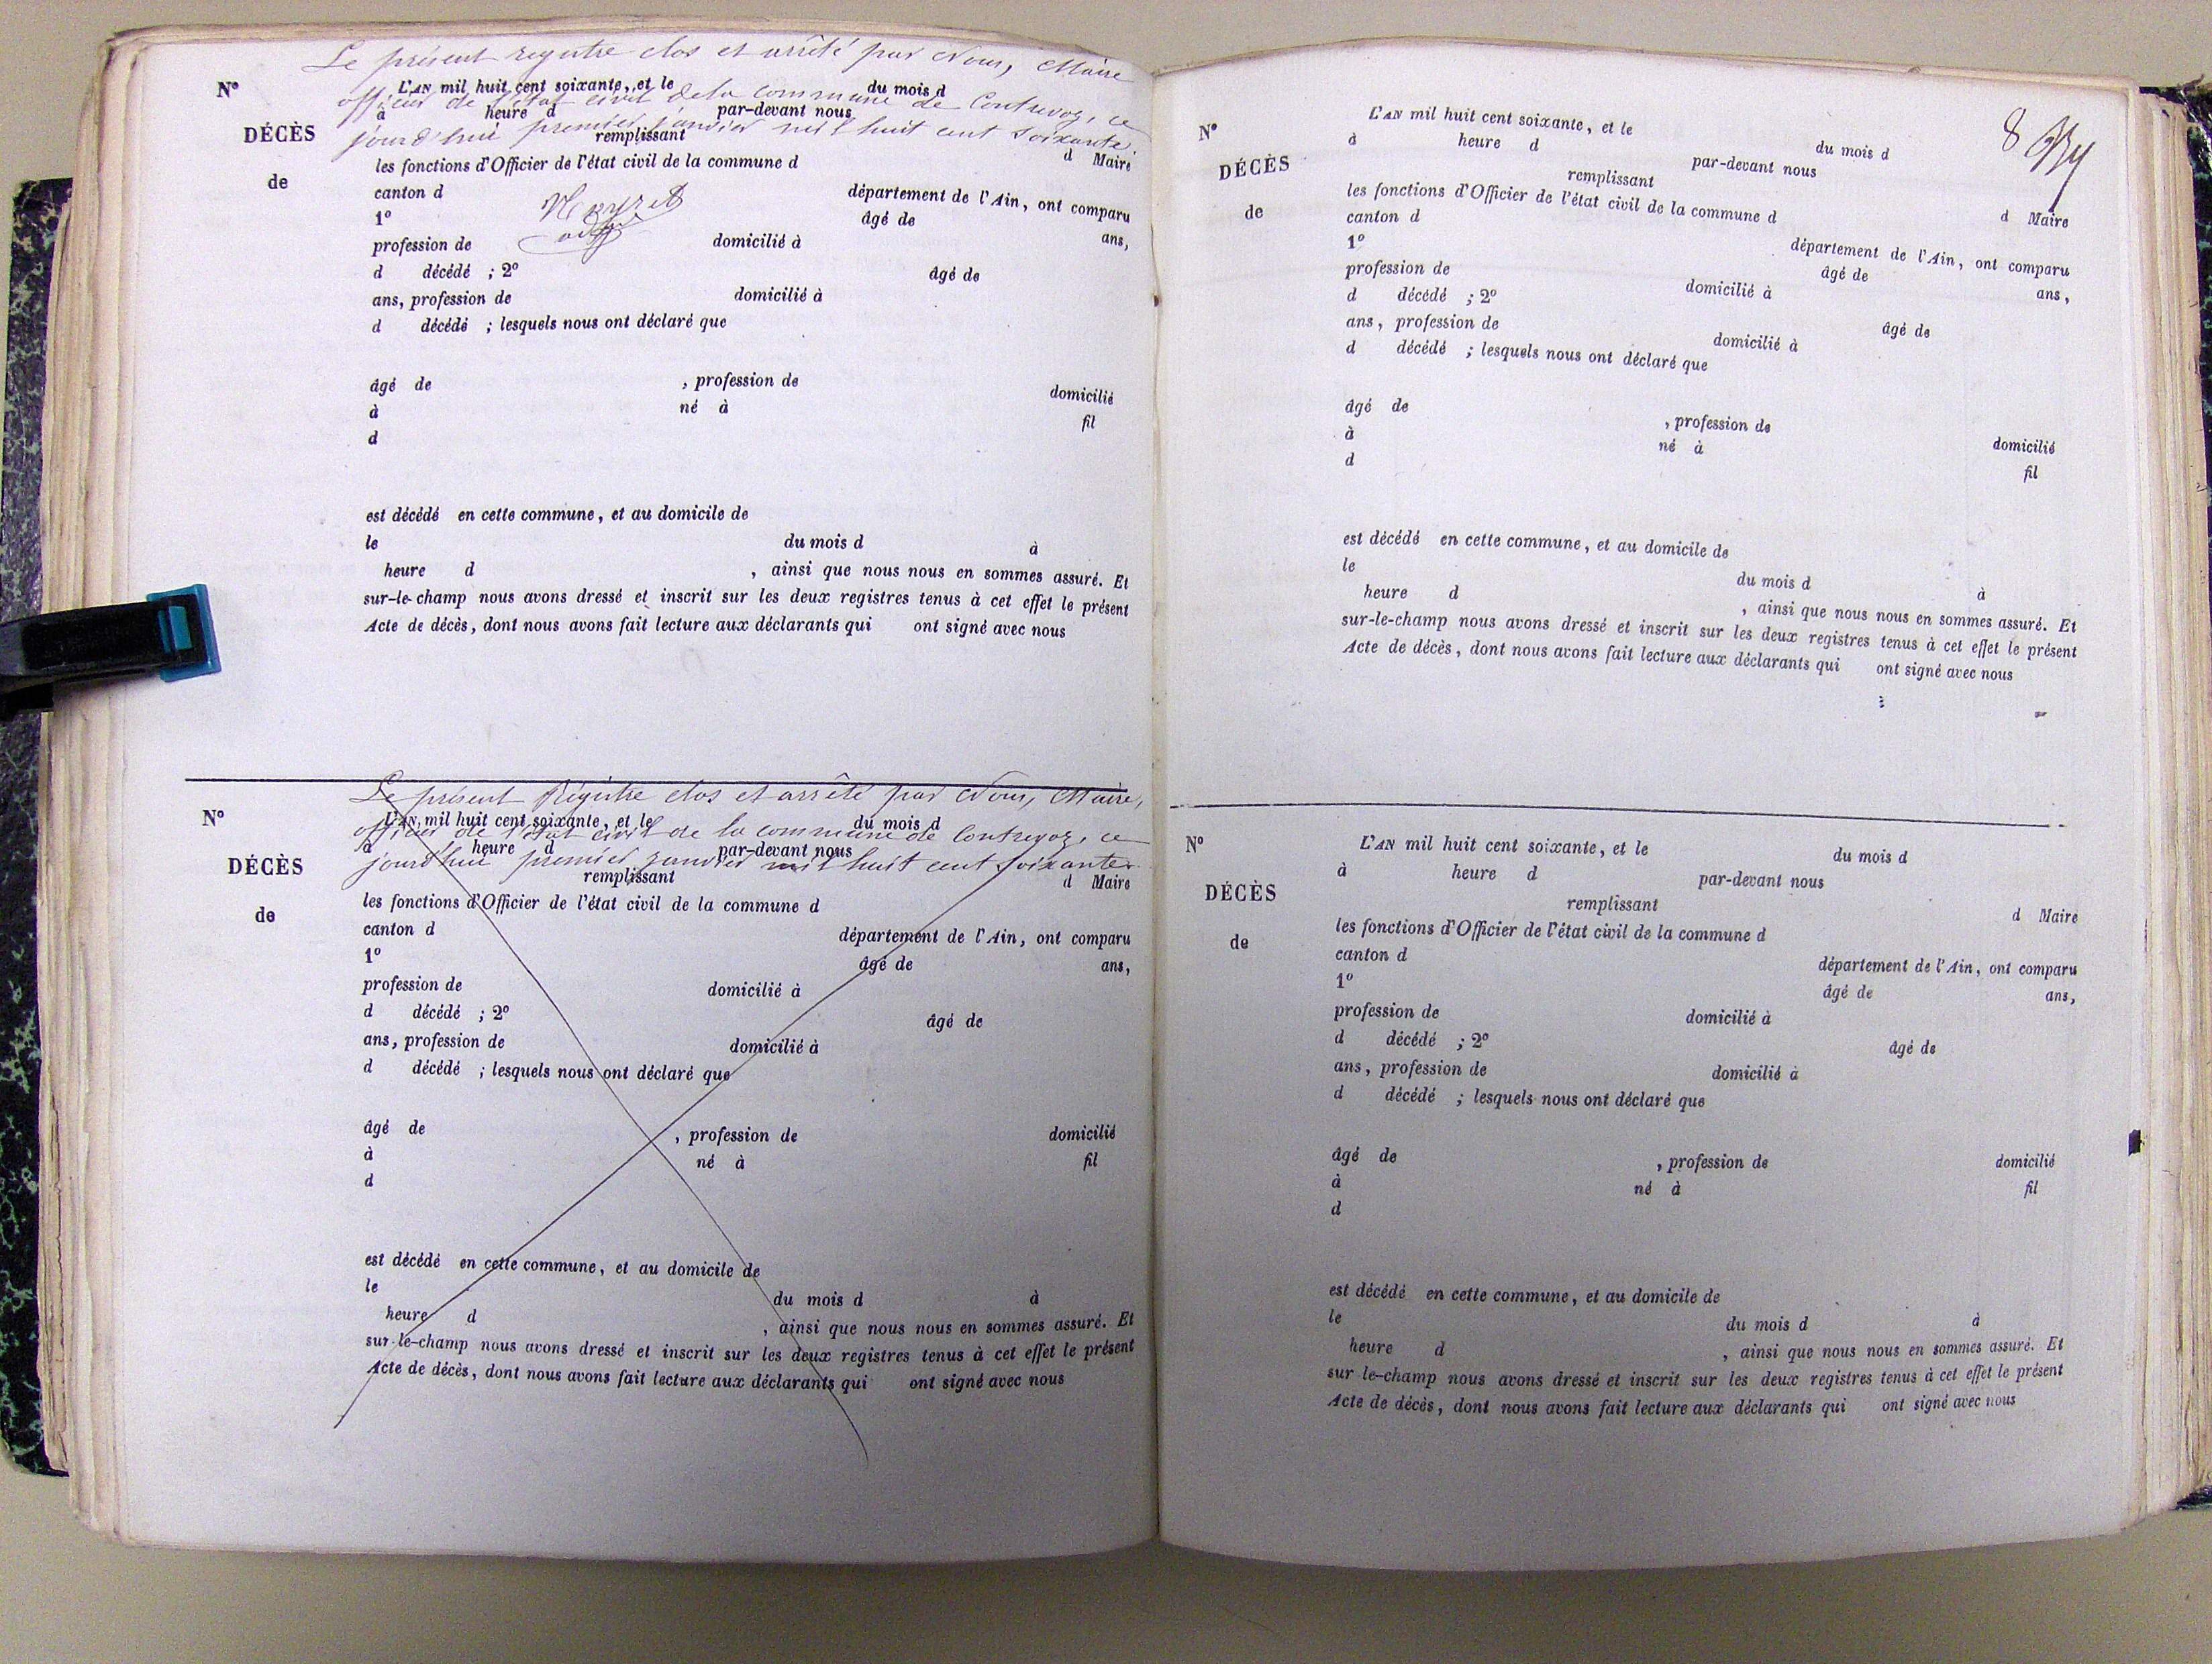 Le présent registre clos et arrêté par Nous, Maire
officier de l'état civil de la commune de Contrevoz, ce
jourd'hui premier janvier mil huit cent soixante.
N°
DÉCÈS
de
L'AN mil huit cent soixante, et le du mois d
à heure d par-devant nous
remplissant d Maire
les fonctions d'Officier de l'état civil de la commune d
canton d département de l'Ain, ont comparu
1° âgé de ans,
profession de domicilié à
d décédé ; 2° âgé de
ans, profession de domicilié à
d décédé ; lesquels nous ont déclaré que
âgé de , profession de domicilié
à né à fil
d
est décédé en cette commune, et au domicile de
le du mois d à
heure d , ainsi que nous nous en sommes assuré. Et
sur-le-champ nous avons dressé et inscrit sur les deux registres tenus à cet effet le présent
Acte de décès, dont nous avons fait lecture aux déclarants qui ont signé avec nous
Le présent Régistre clos et arrêté par Nous, Maire,
officier de l'état civil de la commune de Contrevoz, ce
jourd'hui premier janvier mil huit cent soixante
N°
DÉCÈS
de
L'AN mil huit cent soixante, et le du mois d
à heure d par-devant nous
remplissant d Maire
les fonctions d'Officier de l'état civil de la commune d
canton d département de l'Ain, ont comparu
1° âgé de ans,
profession de domicilié à
d décédé ; 2° âgé de
ans, profession de domicilié à
d décédé ; lesquels nous ont déclaré que
âgé de , profession de domicilié
à né à fil
d
est décédé en cette commune, et au domicile de
le du mois d à
heure d , ainsi que nous nous en sommes assuré. Et
sur-le-champ nous avons dressé et inscrit sur les deux registres tenus à cet effet le présent
Acte de décès, dont nous avons fait lecture aux déclarants qui ont signé avec nous
8
N°
DÉCÈS
de
L'AN mil huit cent soixante, et le du mois d
à heure d par-devant nous
remplissant d Maire
les fonctions d'Officier de l'état civil de la commune d
canton d département de l'Ain, ont comparu
1° âgé de ans,
profession de domicilié à
d décédé ; 2° âgé de
ans, profession de domicilié à
d décédé ; lesquels nous ont déclaré que
âgé de , profession de domicilié
à né à fil
d
est décédé en cette commune, et au domicile de
le du mois d à
heure d , ainsi que nous nous en sommes assuré. Et
sur-le-champ nous avons dressé et inscrit sur les deux registres tenus à cet effet le présent
Acte de décès, dont nous avons fait lecture aux déclarants qui ont signé avec nous
N°
DÉCÈS
de
L'AN mil huit cent soixante, et le du mois d
à heure d par-devant nous
remplissant d Maire
les fonctions d'Officier de l'état civil de la commune d
canton d département de l'Ain, ont comparu
1° âgé de ans,
profession de domicilié à
d décédé ; 2° âgé de
ans, profession de domicilié à
d décédé ; lesquels nous ont déclaré que
âgé de , profession de domicilié
à né à fil
d
est décédé en cette commune, et au domicile de
le du mois d à
heure d , ainsi que nous nous en sommes assuré. Et
sur le-champ nous avons dressé et inscrit sur les deux registres tenus à cet effet le présent
Acte de décès, dont nous avons fait lecture aux déclarants qui ont signé avec nous